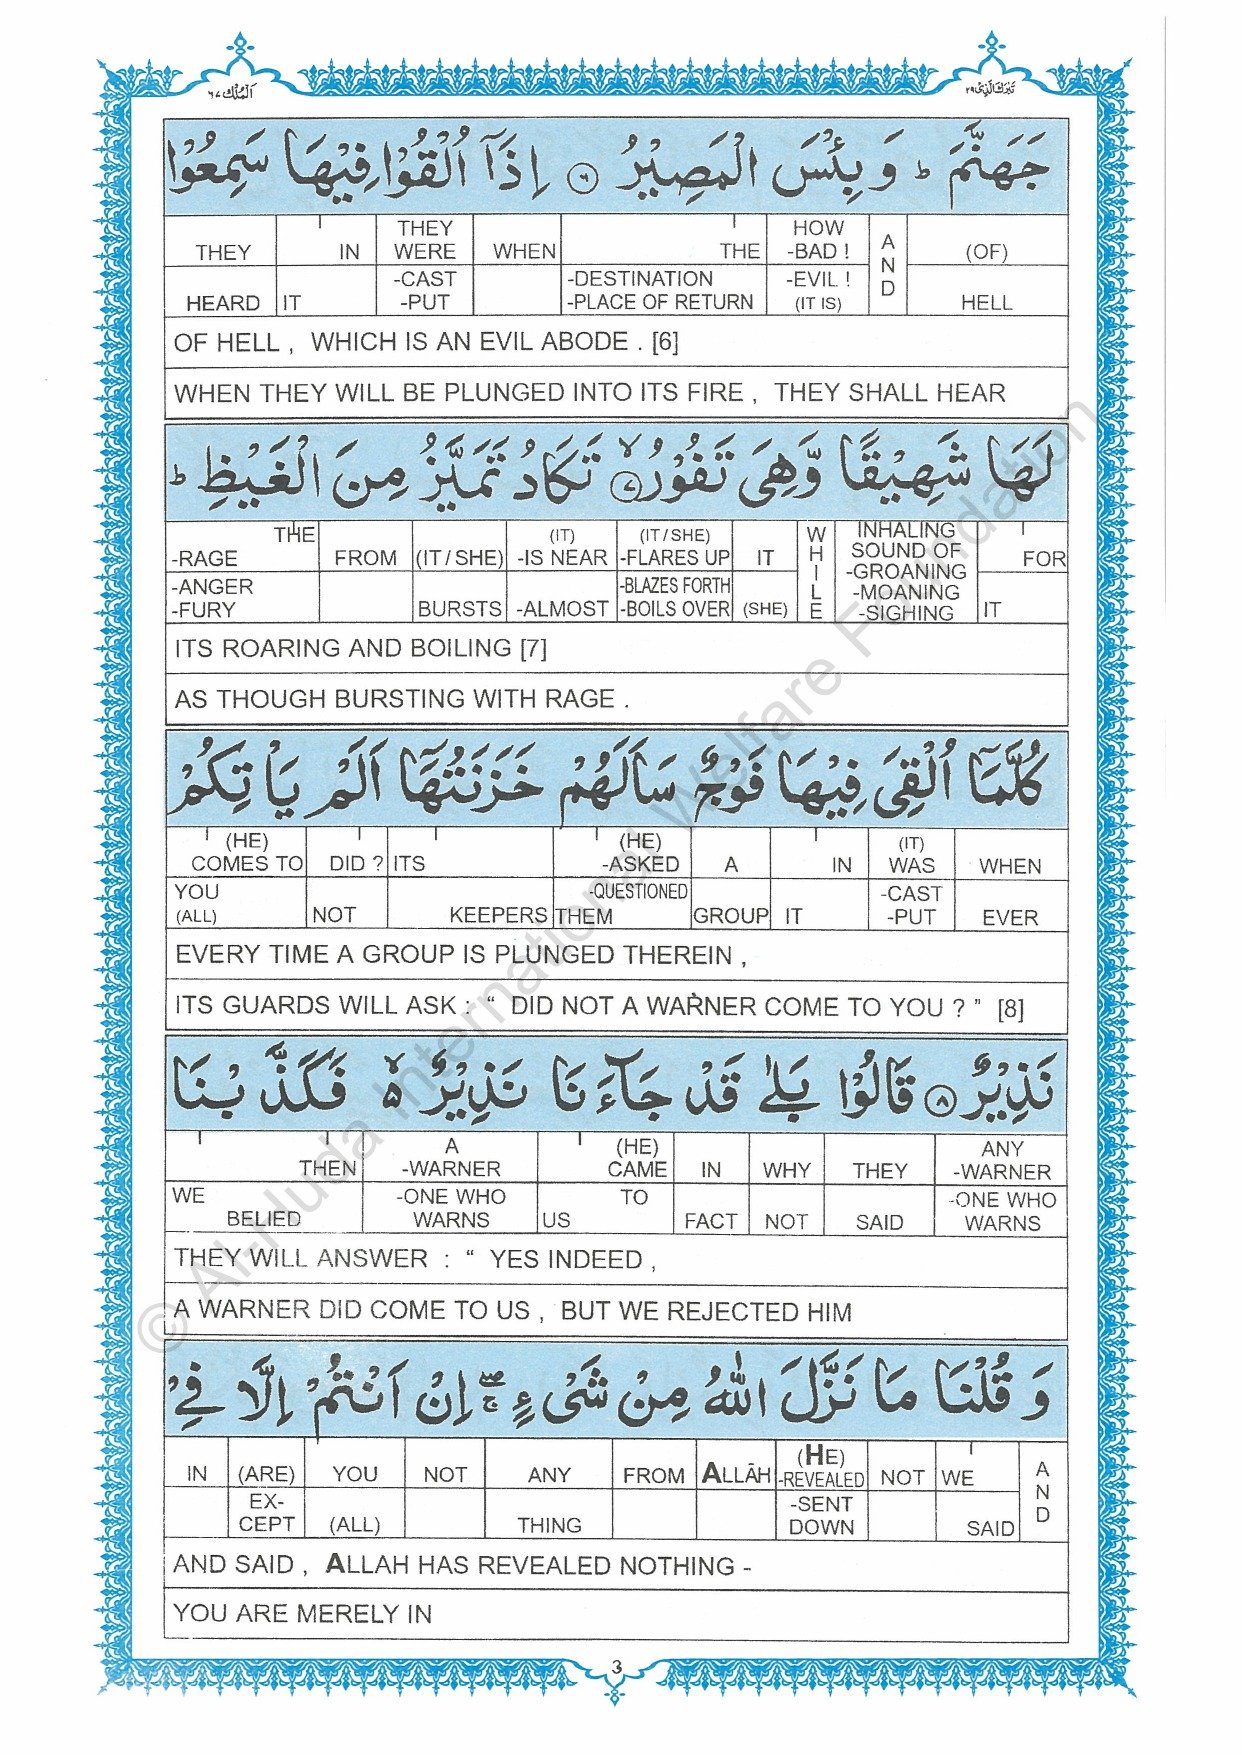 اَلْمُلْك ٦٧
تَبٰرَكَ الَّذِیْ ٢٩
جَهَنَّمَ ؕ وَ بِئْسَ الْمَصِیْرُ ۶ اِذَاۤ اُلْقُوْا فِیْهَا سَمِعُوْا
THEY IN THEY WERE WHEN THE HOW -BAD ! AND (OF)
HEARD IT -CAST -PUT -DESTINATION -PLACE OF RETURN -EVIL ! (IT IS) HELL
OF HELL , WHICH IS AN EVIL ABODE . [6]
WHEN THEY WILL BE PLUNGED INTO ITS FIRE , THEY SHALL HEAR
لَهَا شَهِیْقًا وَّهِیَ تَفُوْرُ ۙ۷ تَكَادُ تَمَیَّزُ مِنَ الْغَیْظِ ؕ
THE -RAGE FROM (IT/SHE) (IT) -IS NEAR (IT/SHE) -FLARES UP IT WHILE INHALING SOUND OF -GROANING FOR
-ANGER -FURY BURSTS -ALMOST -BLAZES FORTH -BOILS OVER (SHE) -MOANING -SIGHING IT
ITS ROARING AND BOILING [7]
AS THOUGH BURSTING WITH RAGE .
كُلَّمَاۤ اُلْقِیَ فِیْهَا فَوْجٌ سَاَلَهُمْ خَزَنَتُهَاۤ اَلَمْ یَاْتِكُمْ
(HE) COMES TO DID ? ITS (HE) -ASKED A IN (IT) WAS WHEN
YOU (ALL) NOT KEEPERS -QUESTIONED THEM GROUP IT -CAST -PUT EVER
EVERY TIME A GROUP IS PLUNGED THEREIN ,
ITS GUARDS WILL ASK : “ DID NOT A WARNER COME TO YOU ? ” [8]
نَذِیْرٌ ۸ قَالُوْا بَلٰی قَدْ جَآءَنَا نَذِیْرٌ ۙ۵ فَكَذَّبْنَا
THEN A -WARNER (HE) CAME IN WHY THEY ANY -WARNER
WE BELIED -ONE WHO WARNS TO US FACT NOT SAID -ONE WHO WARNS
THEY WILL ANSWER : “ YES INDEED ,
A WARNER DID COME TO US , BUT WE REJECTED HIM
وَ قُلْنَا مَا نَزَّلَ اللّٰهُ مِنْ شَیْءٍ ۖۚ اِنْ اَنْتُمْ اِلَّا فِیْ
IN (ARE) YOU NOT ANY FROM ALLĀH (HE) -REVEALED NOT WE AND
EX- CEPT (ALL) THING -SENT DOWN SAID
AND SAID , ALLAH HAS REVEALED NOTHING -
YOU ARE MERELY IN
3
© Al-Huda International Welfare Foundation